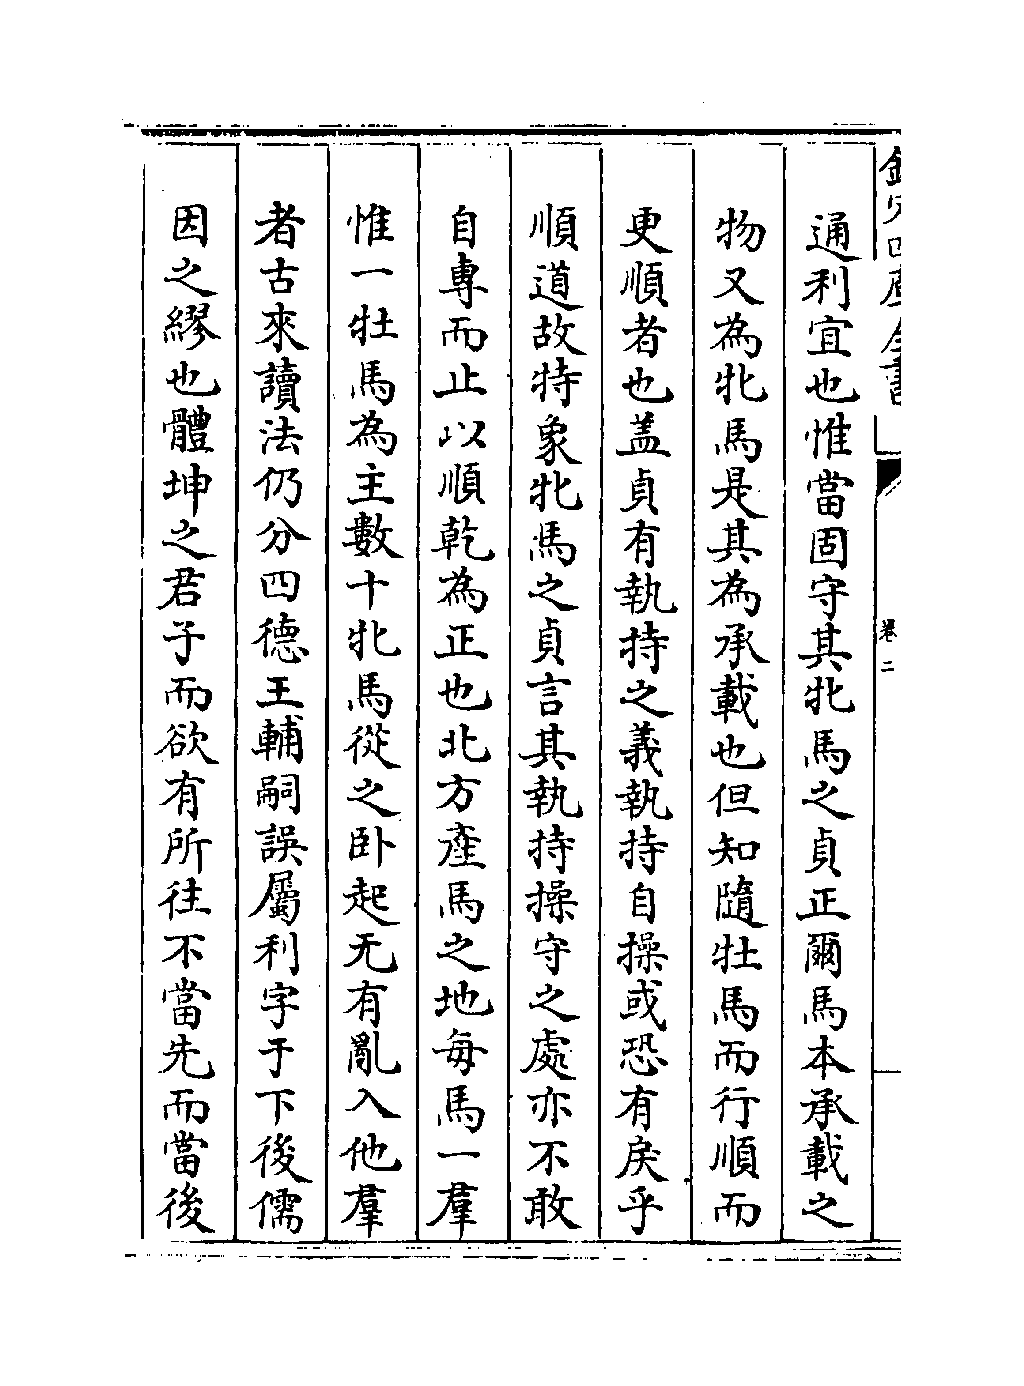 欽定四庫全書
卷二
通利宜也惟當固守其牝馬之貞正爾馬本承載之
物又為牝馬是其為承載也但知隨牡馬而行順而
更順者也盖貞有執持之義執持自操或恐有戾乎
順道故特象牝馬之貞言其執持操守之處亦不敢
自專而止以順乾為正也北方產馬之地每馬一羣
惟一牡馬為主數十牝馬從之卧起无有亂入他羣
者古來讀法仍分四德王輔嗣誤屬利字于下後儒
因之繆也體坤之君子而欲有所往不當先而當後